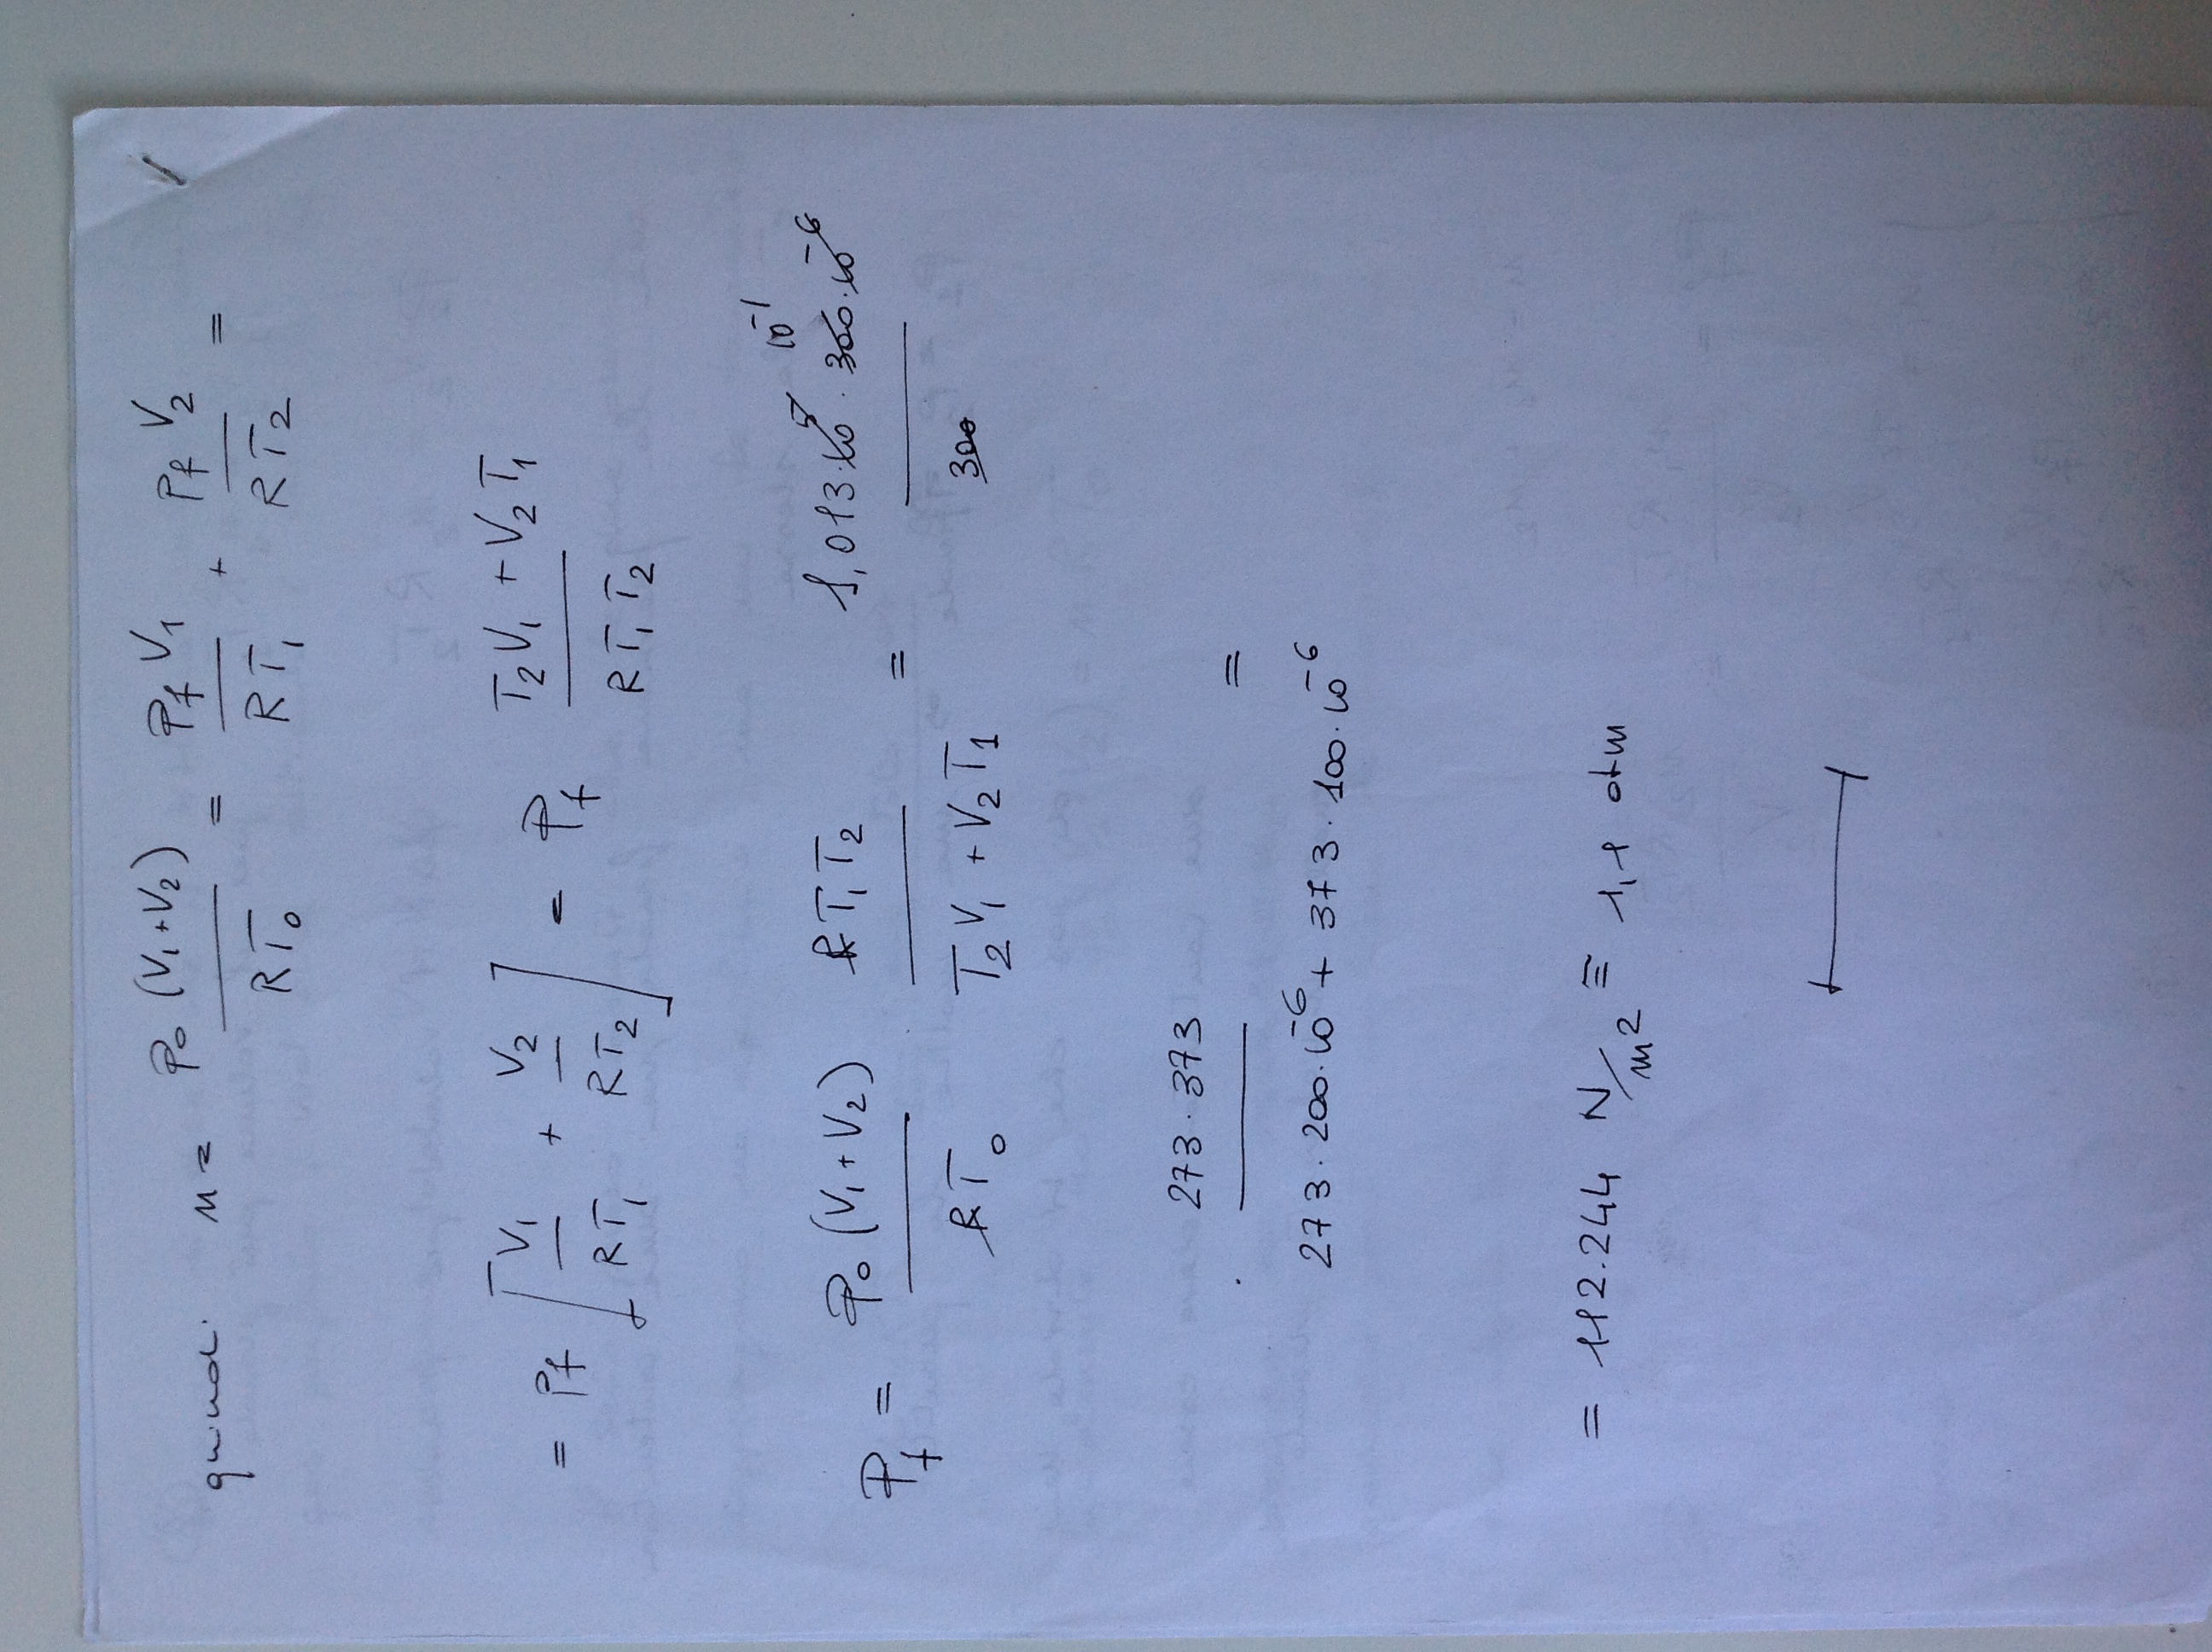 quindi n = p₀ (V₁ + V₂) / RT₀ = p_f V₁ / RT₁ + p_f V₂ / RT₂ =
= p_f [ V₁ / RT₁ + V₂ / RT₂ ] = p_f (T₂V₁ + V₂T₁) / RT₁T₂
p_f = p₀ (V₁ + V₂) / RT₀ · RT₁T₂ / (T₂V₁ + V₂T₁) = 1,013·10⁵ · 300·10⁻⁶ / 300 10⁻¹
· 273·373 / (273·200·10⁻⁶ + 373·100·10⁻⁶) =
= 112.244 N/m² ≡ 1,1 atm